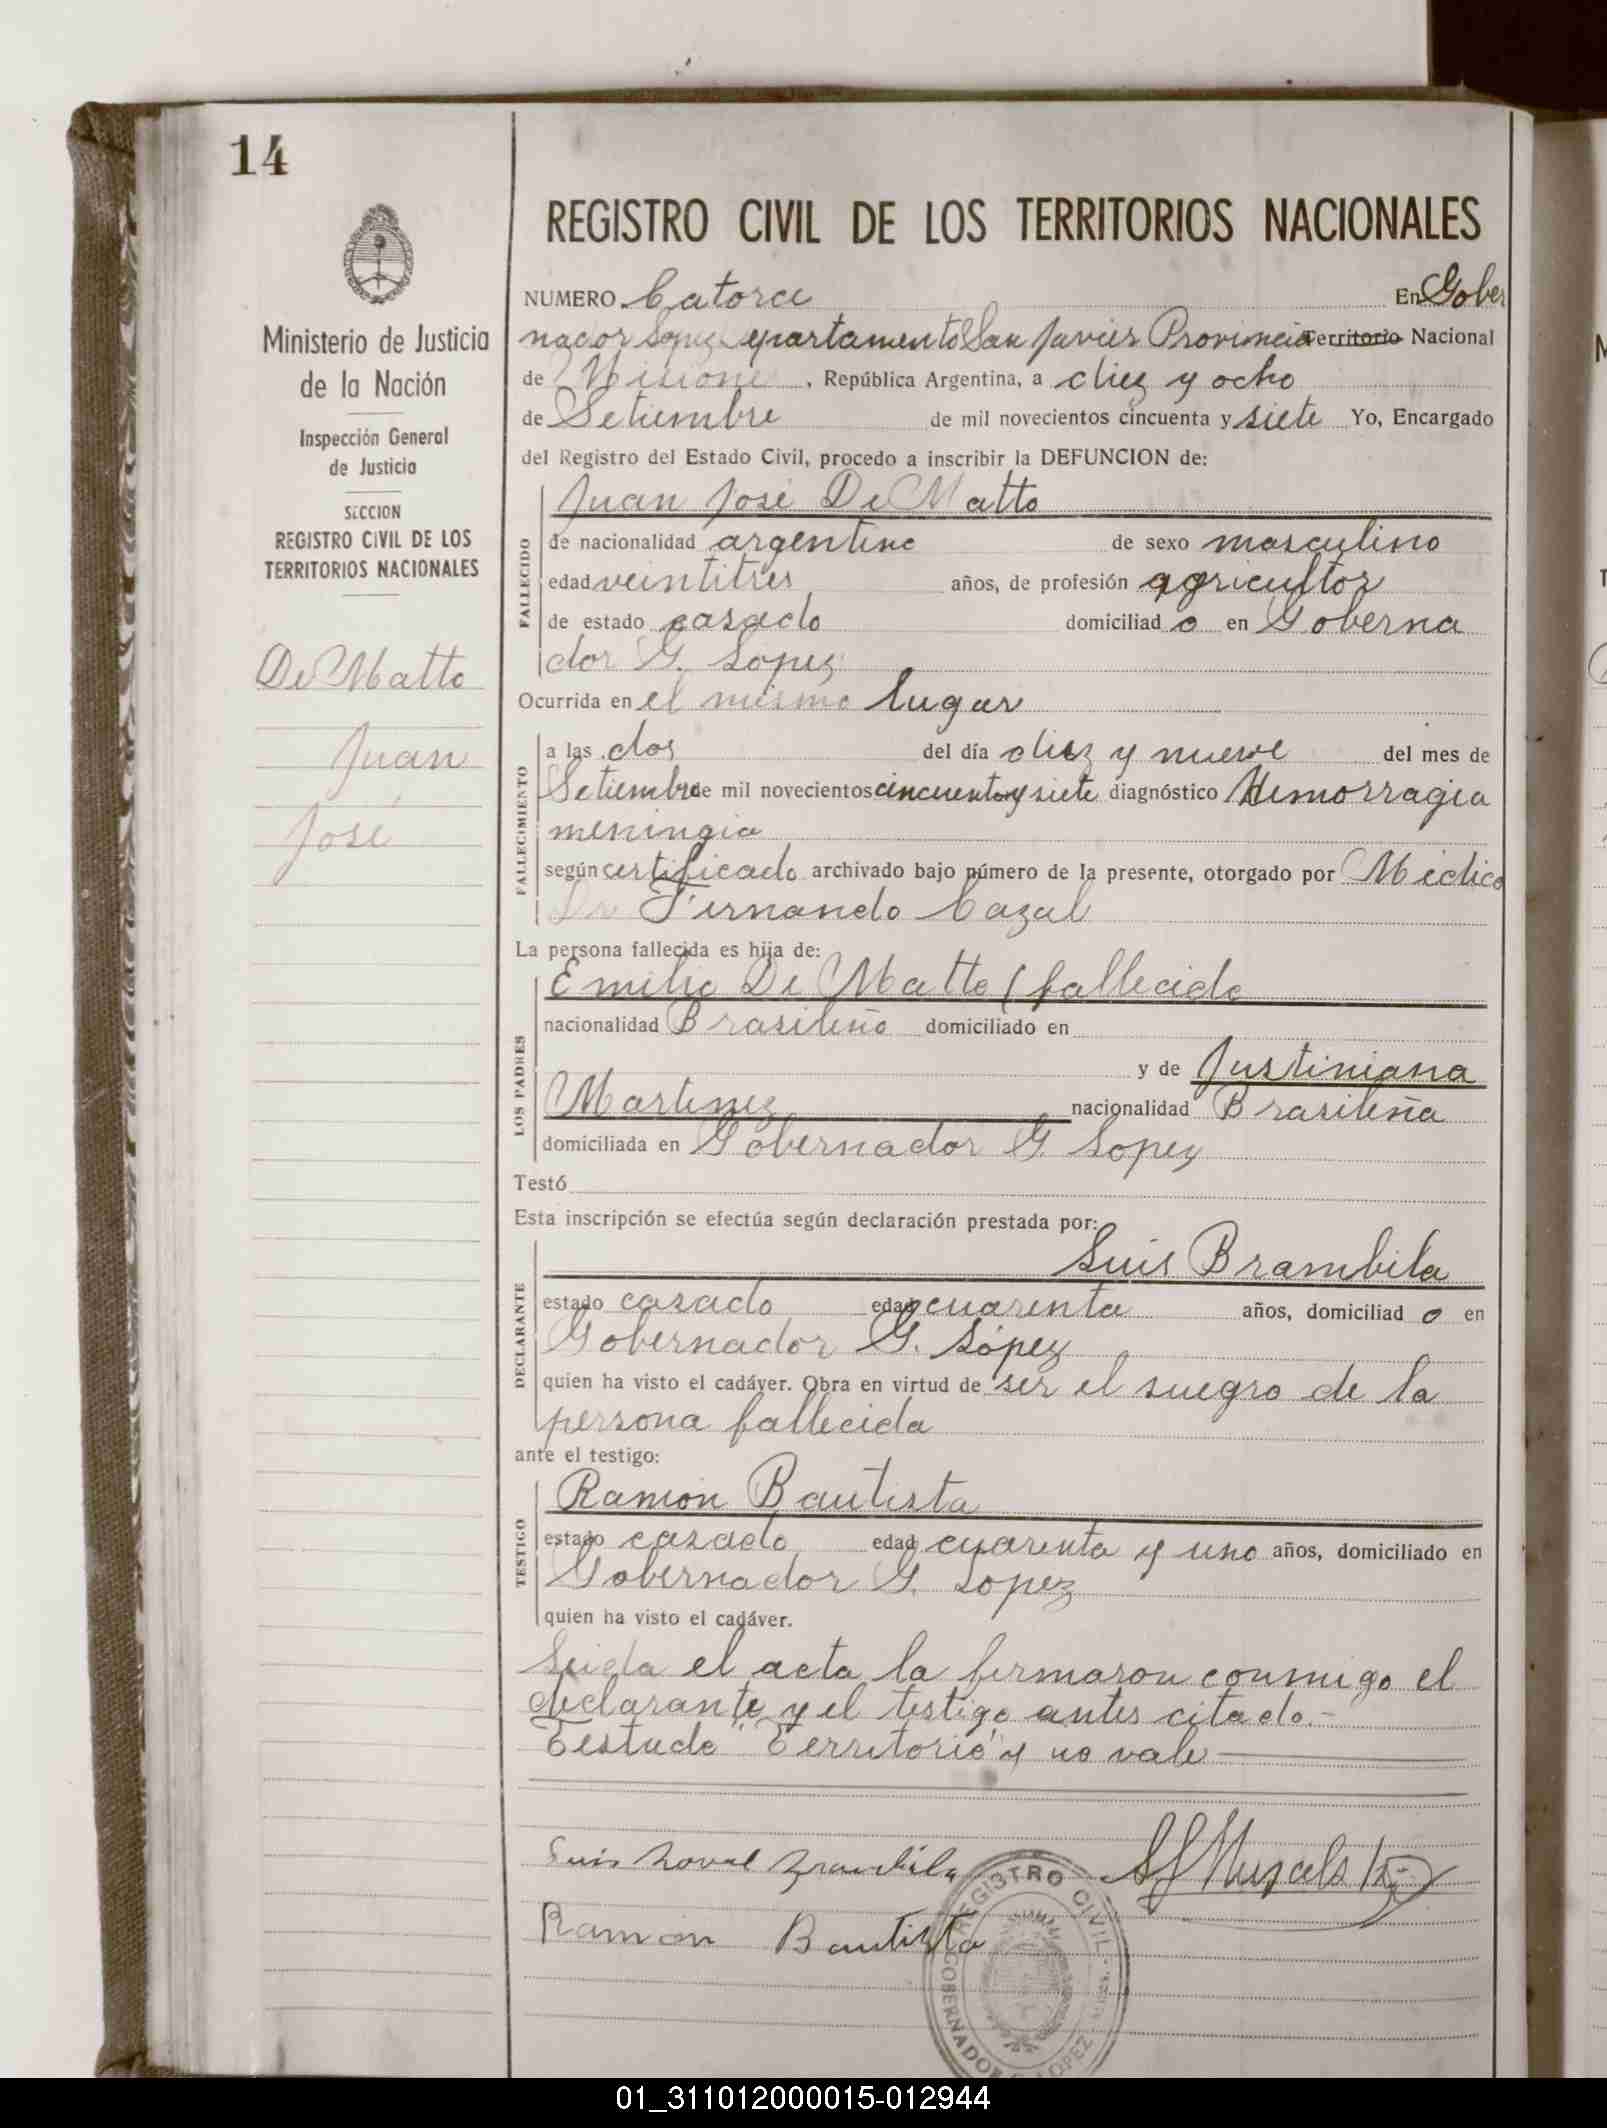 14
Ministerio de Justicia
de la Nación
Inspección General
de Justicia
SECCION
REGISTRO CIVIL DE LOS
TERRITORIOS NACIONALES
De Matto
Juan
José
REGISTRO CIVIL DE LOS TERRITORIOS NACIONALES
NUMERO Catorce En Gober
nador Lopez epartamento San Javier Provincia Territorio Nacional
de Misione , República Argentina, a diez y ocho
de Setiembre de mil novecientos cincuenta y siete Yo, Encargado
del Registro del Estado Civil, procedo a inscribir la DEFUNCION de:
Juan José De Matto
FALLECIDO
de nacionalidad argentino de sexo masculino
edad veintitres años, de profesión agricultor
de estado casado domiciliad o en Goberna
dor G. Lopez
Ocurrida en el mismo lugar
FALLECIMIENTO
a las dos del día diez y nueve del mes de
Setiembre de mil novecientos cincuenta y siete diagnóstico Hemorragia
meningia
según certificado archivado bajo número de la presente, otorgado por Médico
Dr Fernando Cazal
La persona fallecida es hija de:
LOS PADRES
Emilio De Matto (fallecido
nacionalidad Brasileño domiciliado en
y de Justiniana
Martinez nacionalidad Brasileña
domiciliada en Gobernador G. Lopez
Testó
Esta inscripción se efectúa según declaración prestada por:
DECLARANTE
Luis Brambila
estado casado edad cuarenta años, domiciliad o en
Gobernador G. López
quien ha visto el cadáver. Obra en virtud de ser el suegro de la
persona fallecida
ante el testigo:
TESTIGO
Ramón Bautista
estado casado edad cuarenta y uno años, domiciliado en
Gobernador G. Lopez
quien ha visto el cadáver.
Leida el acta la firmaron conmigo el
declarante y el testigo antes citado.-
Testado "Territorio" y no vale
Luis Brambila
Ramon Bautista
REGISTRO CIVIL
GOBERNADOR LOPEZ
01_311012000015-012944